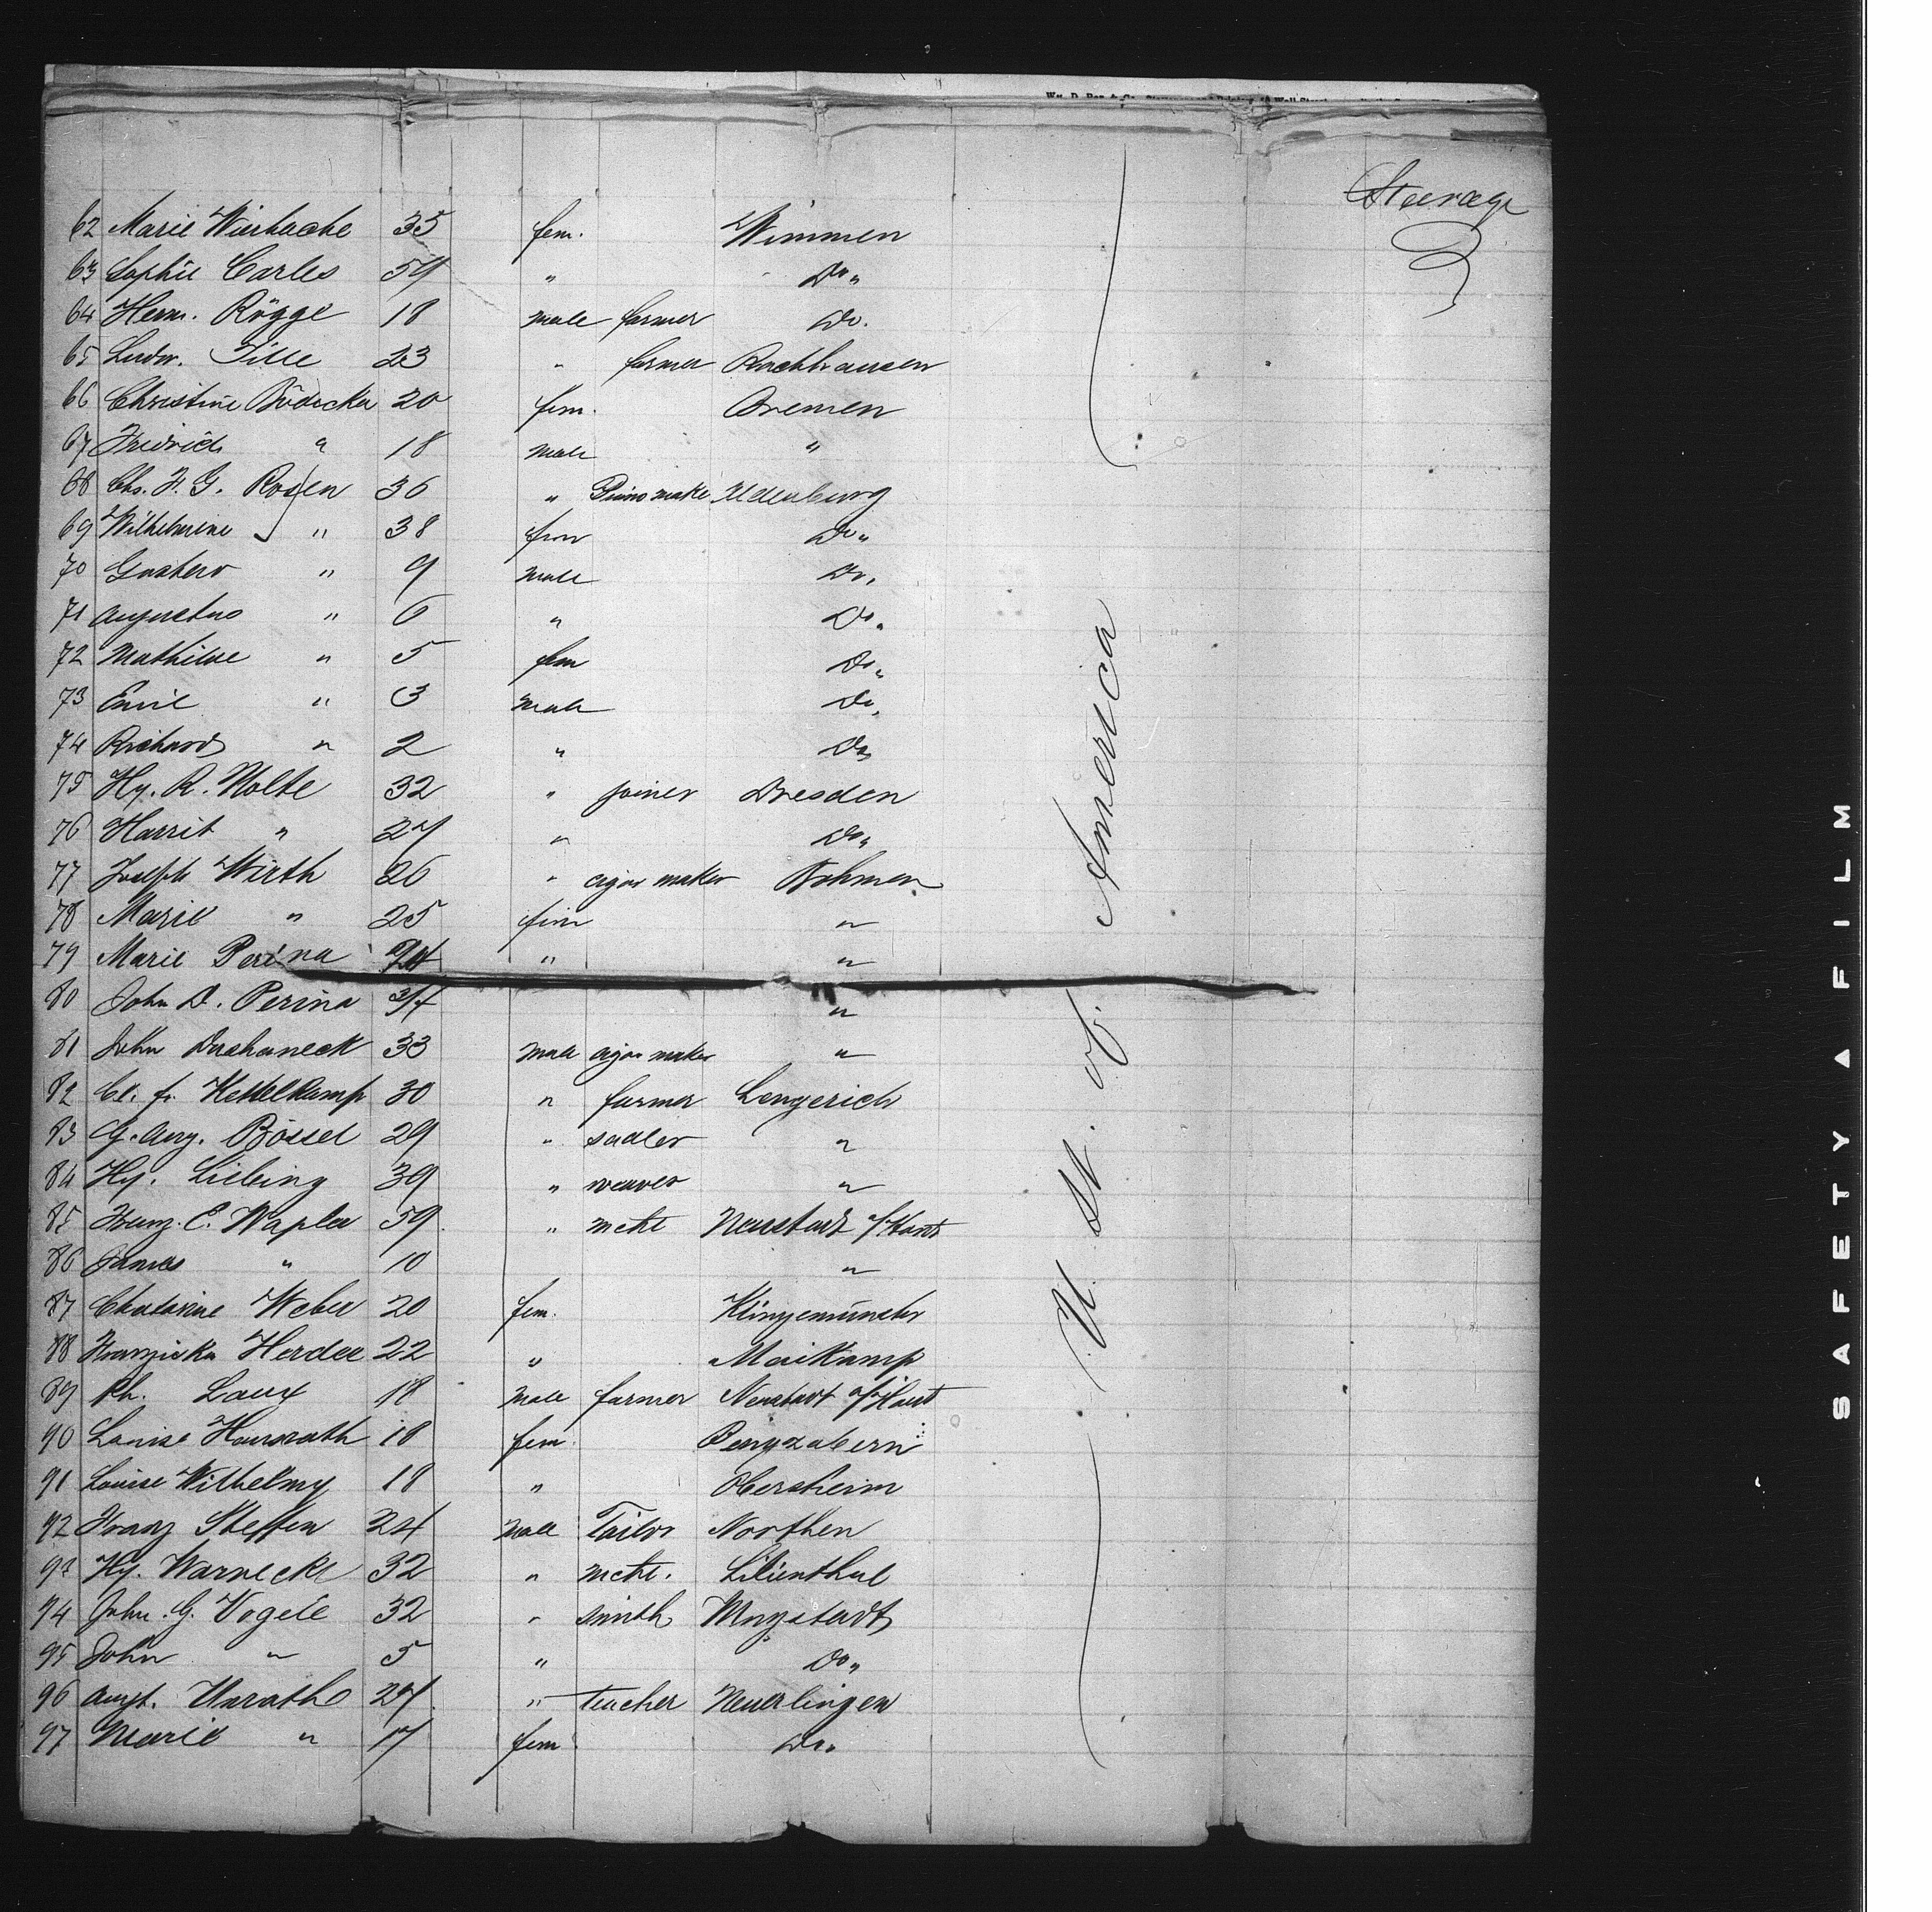 Steerage
62 Marie 35 fem. Wimmen
63 Sophie Carles 54 " Do "
64 Herm. Rögge 18 male farmer Do.
65 Ludw. Tille 23 " farmer
66 Christine Bödecker 20 fem. Bremen
67 Fredrich " 18 male "
68 Chs. F. G. Rosen 36 " Piano make Oldenburg
69 Wilhelmine " 38 fem Do "
70 Gustav " 9 male Do "
71 Augustus " 6 " Do "
72 Mathilde " 5 fem Do "
73 Emil " 3 male Do "
74 Richard " 2 " Do "
75 Hy. R. Nolte 32 " joiner Dresden
76 Harrit " 27 " Do "
77 Joseph Wirth 26 " cigar maker Bohmen
78 Marie " 25 fem "
79 Marie Perina 24 " "
80 John D. Perina "
81 John 33 male cigar maker "
82 Kettelkamp 30 " farmer Lengerich
83 G. Aug. Bössel 29 " sadler "
84 Hy. Liebing 39 " weaver "
85 Franz. C. Wapler 59 " mcht Neustadt a/Hardt
86 James " 10 "
87 Chatarine Weber 20 fem. Klingemünster
88 Franziska Herder 22 " Maikamp
89 Ph. Laux 18 male farmer Neustadt a/Hardt
90 Louise Hausrath 18 fem. Bergzabern
91 Louise Wilhelmy 18 " Obersheim
92 Franz Steffen 24 male Tailor Northen
93 Hy. Warnecke 32 " mcht. Lilienthal
94 John. G. Vogele 32 " smith
95 John " 5 " Do "
96 Augt. Unrath 27 " teacher
97 Marie " 17 fem Do "
U. St. of America
SAFETY FILM